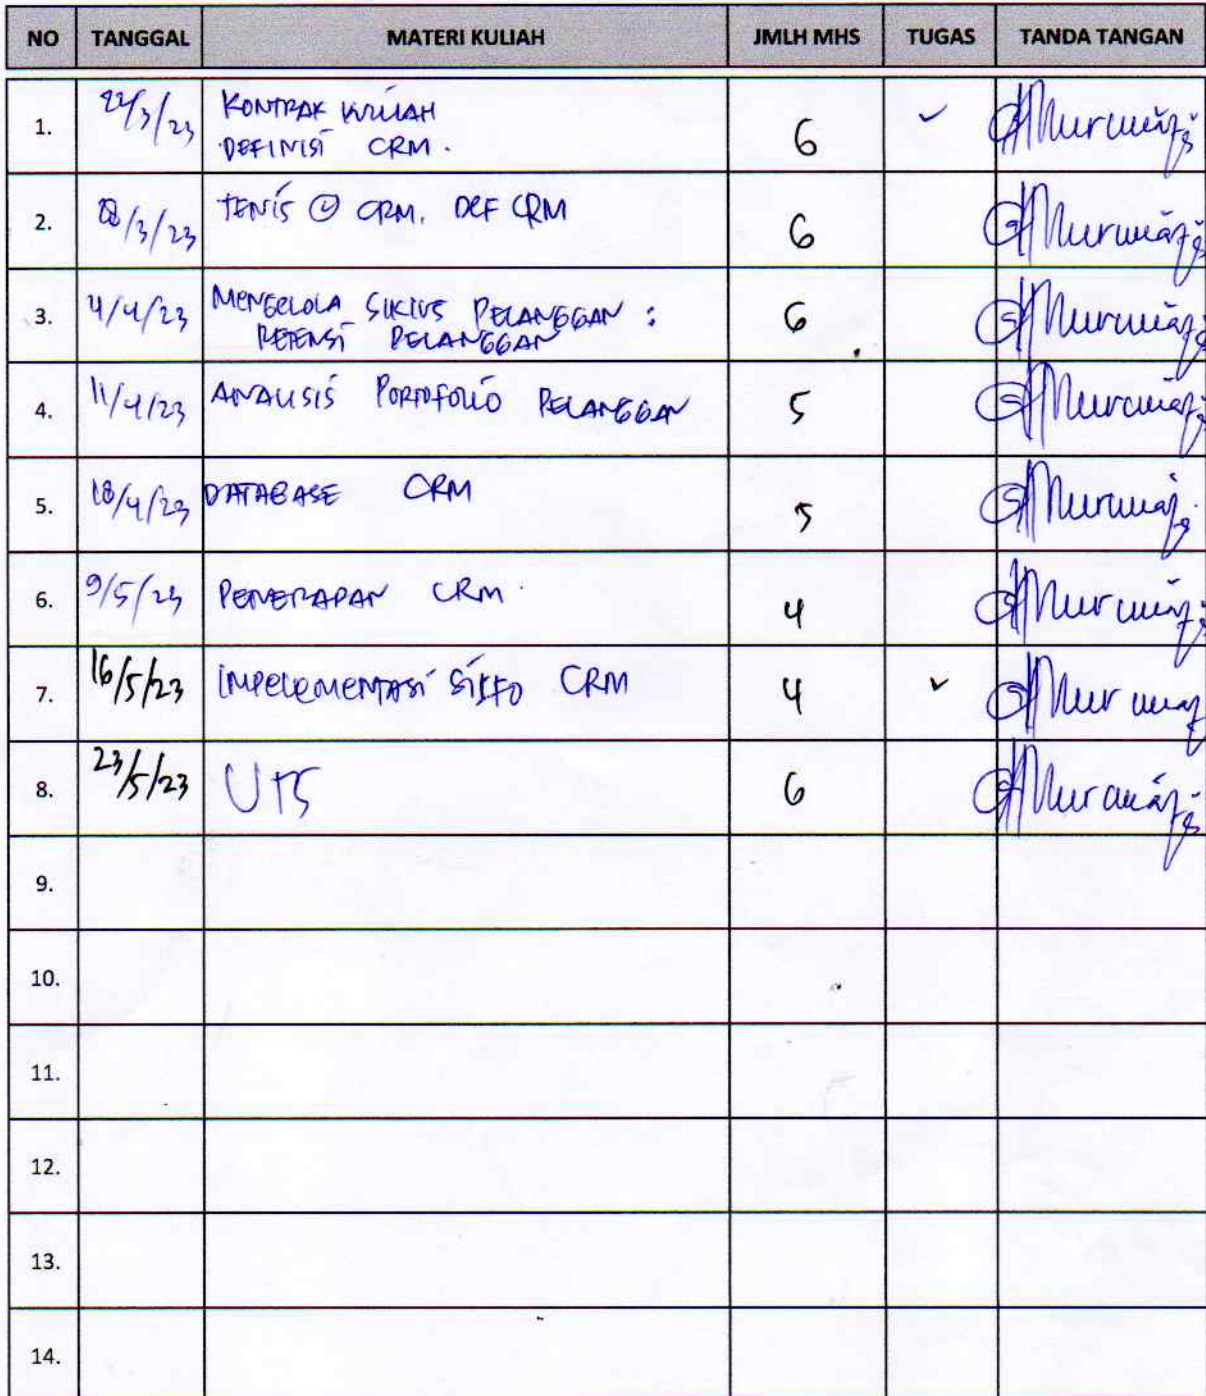 NO TANGGAL MATERI KULIAH JMLH MHS TUGAS TANDA TANGAN
1. 22/3/23 KONTRAK KULIAH 6 ✓
DEFINISI CRM.
2. /3/23 JENIS @ CRM, DEF CRM 6
3. 4/4/23 MENGELOLA SIKLUS PELANGGAN : 6
RETENSI PELANGGAN
4. 11/4/23 ANALISIS PORTOFOLIO PELANGGAN 5
5. 18/4/23 DATABASE CRM 5
6. 9/5/23 PENERAPAN CRM. 4
7. 16/5/23 IMPELEMENTASI SISFO CRM 4 ✓
8. 23/5/23 UTS 6
9.
10.
11.
12.
13.
14.